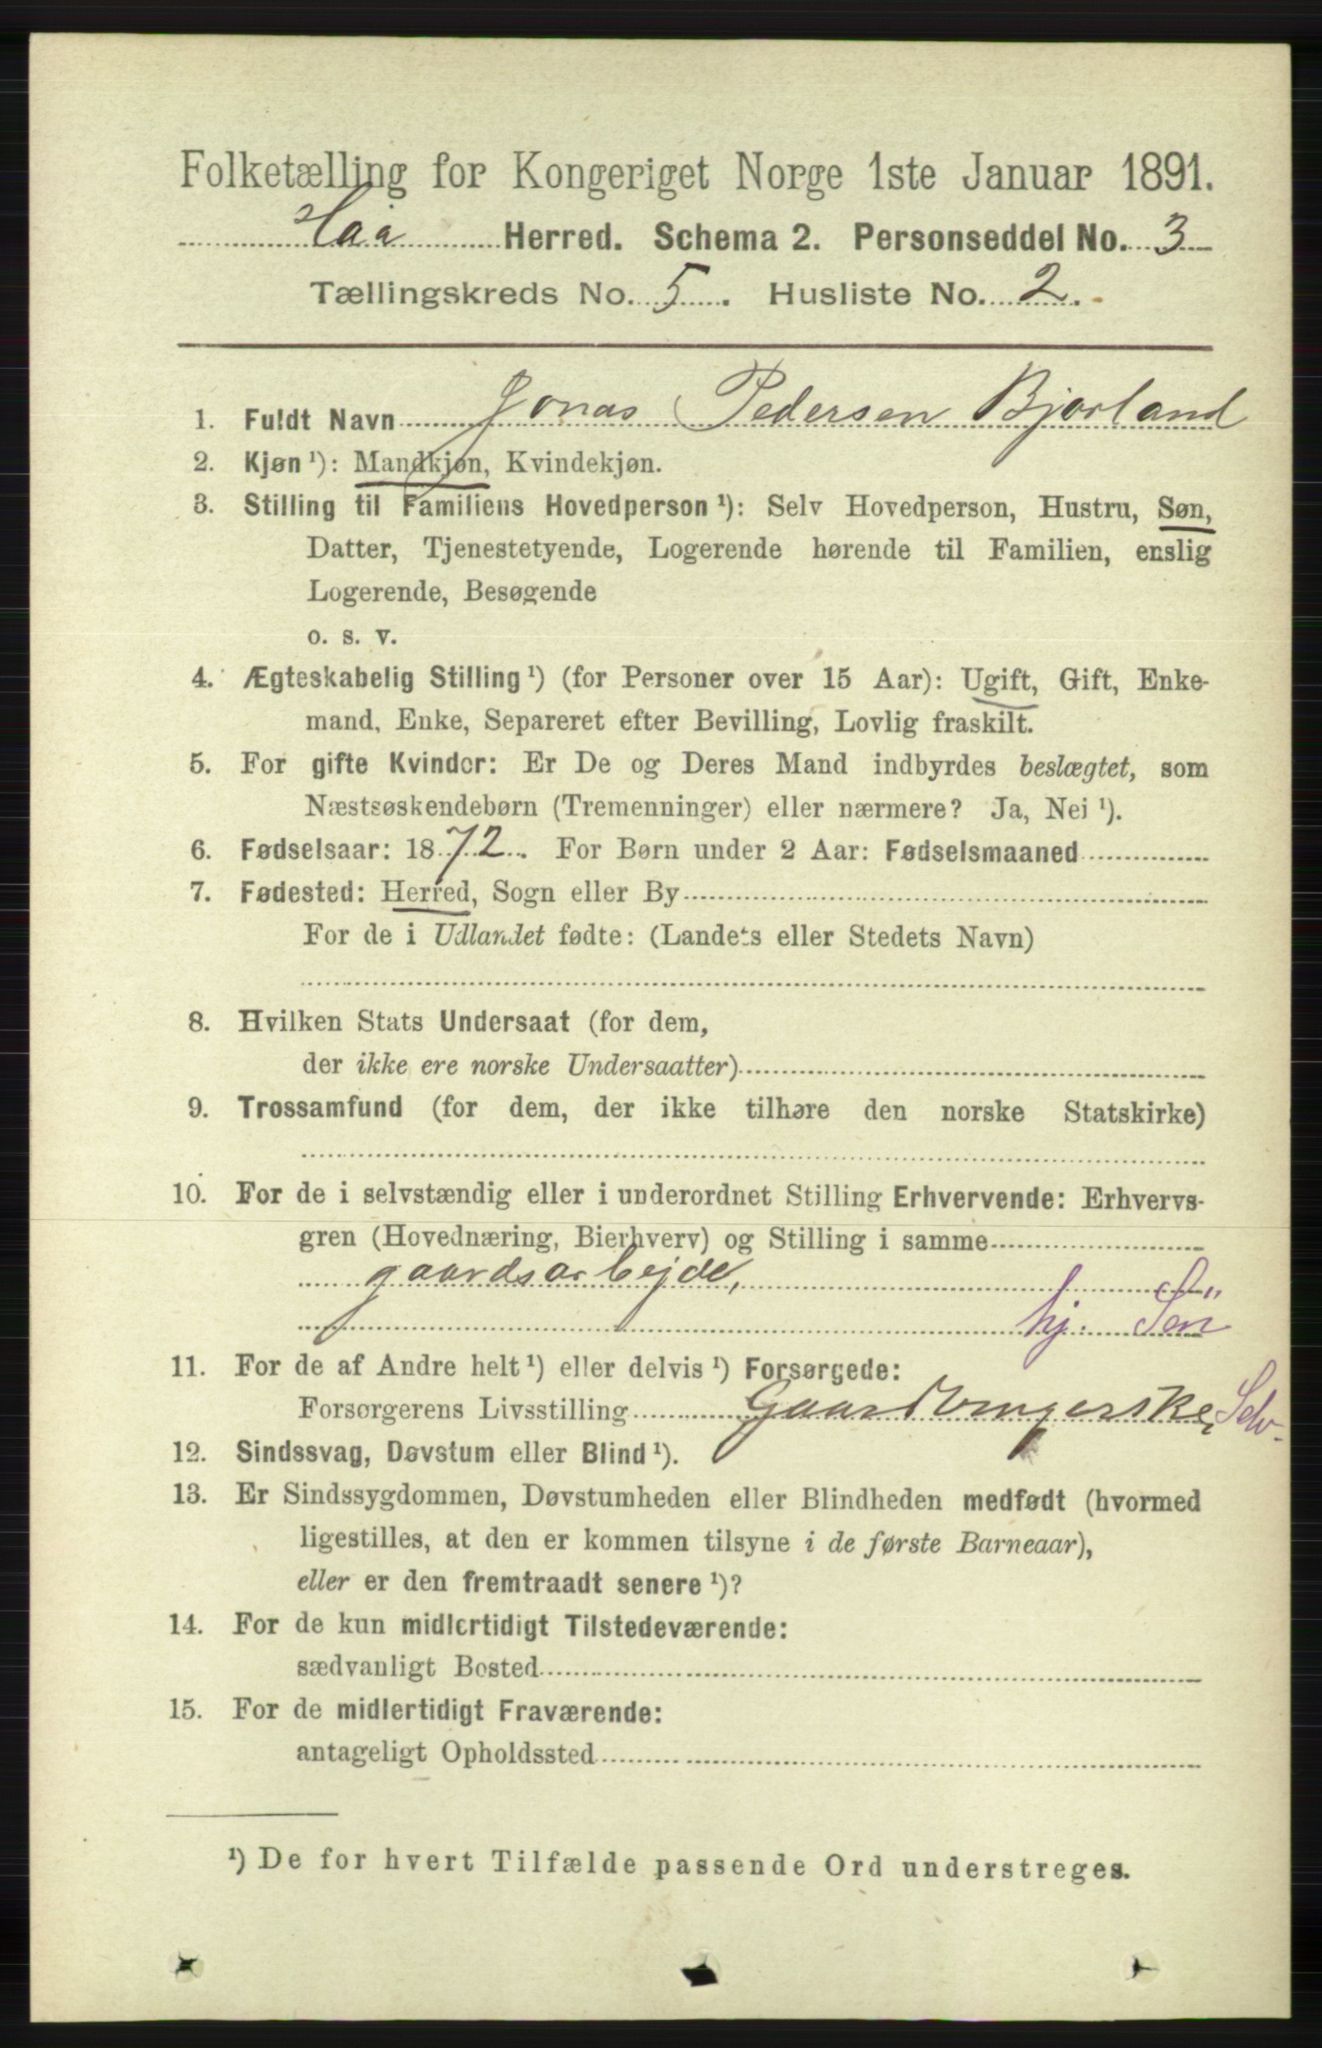 Folketælling for Kongeriget Norge 1ste Januar 1891.
Haa Herred. Schema 2. Personseddel No. 3
Tællingskreds No. 5. Husliste No. 2.
1. Fuldt Navn Jonas Pedersen Bjorland
2. Kjøn ¹): Mandkjøn, Kvindekjøn.
3. Stilling til Familiens Hovedperson ¹): Selv Hovedperson, Hustru, Søn,
Datter, Tjenestetyende, Logerende hørende til Familien, enslig
Logerende, Besøgende
o. s. v.
4. Ægteskabelig Stilling ¹) (for Personer over 15 Aar): Ugift, Gift, Enke-
mand, Enke, Separeret efter Bevilling, Lovlig fraskilt.
5. For gifte Kvinder: Er De og Deres Mand indbyrdes beslægtet, som
Næstsøskendebørn (Tremenninger) eller nærmere? Ja, Nei ¹).
6. Fødselsaar: 1872. For Børn under 2 Aar: Fødselsmaaned
7. Fødested: Herred, Sogn eller By
For de i Udlandet fødte: (Landets eller Stedets Navn)
8. Hvilken Stats Undersaat (for dem,
der ikke ere norske Undersaatter)
9. Trossamfund (for dem, der ikke tilhøre den norske Statskirke)
10. For de i selvstændig eller i underordnet Stilling Erhvervende: Erhvervs-
gren (Hovednæring, Bierhverv) og Stilling i samme
gaardsarbejde,
hj. Søn
11. For de af Andre helt ¹) eller delvis ¹) Forsørgede:
Forsørgerens Livsstilling Gaardbrugerske, Selv.
12. Sindssvag, Døvstum eller Blind ¹).
13. Er Sindssygdommen, Døvstumheden eller Blindheden medfødt (hvormed
ligestilles, at den er kommen tilsyne i de første Barneaar),
eller er den fremtraadt senere ¹)?
14. For de kun midlertidigt Tilstedeværende:
sædvanligt Bosted
15. For de midlertidigt Fraværende:
antageligt Opholdssted
¹) De for hvert Tilfælde passende Ord understreges.